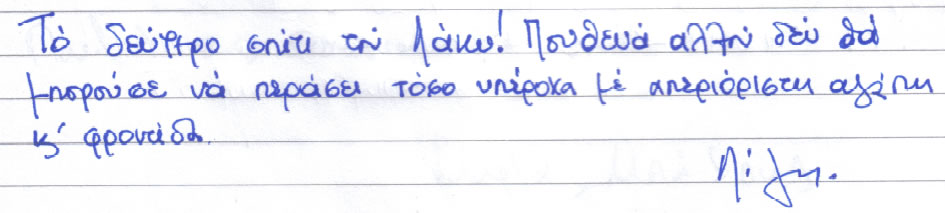 Τό δεύτερο σπίτι τού Λάκυ! Πουθενά αλλού δεν θά
μπορούσε νά περάσει τόσο υπέροχα μέ απεριόριστη αγάπη
κ' φροντίδα.